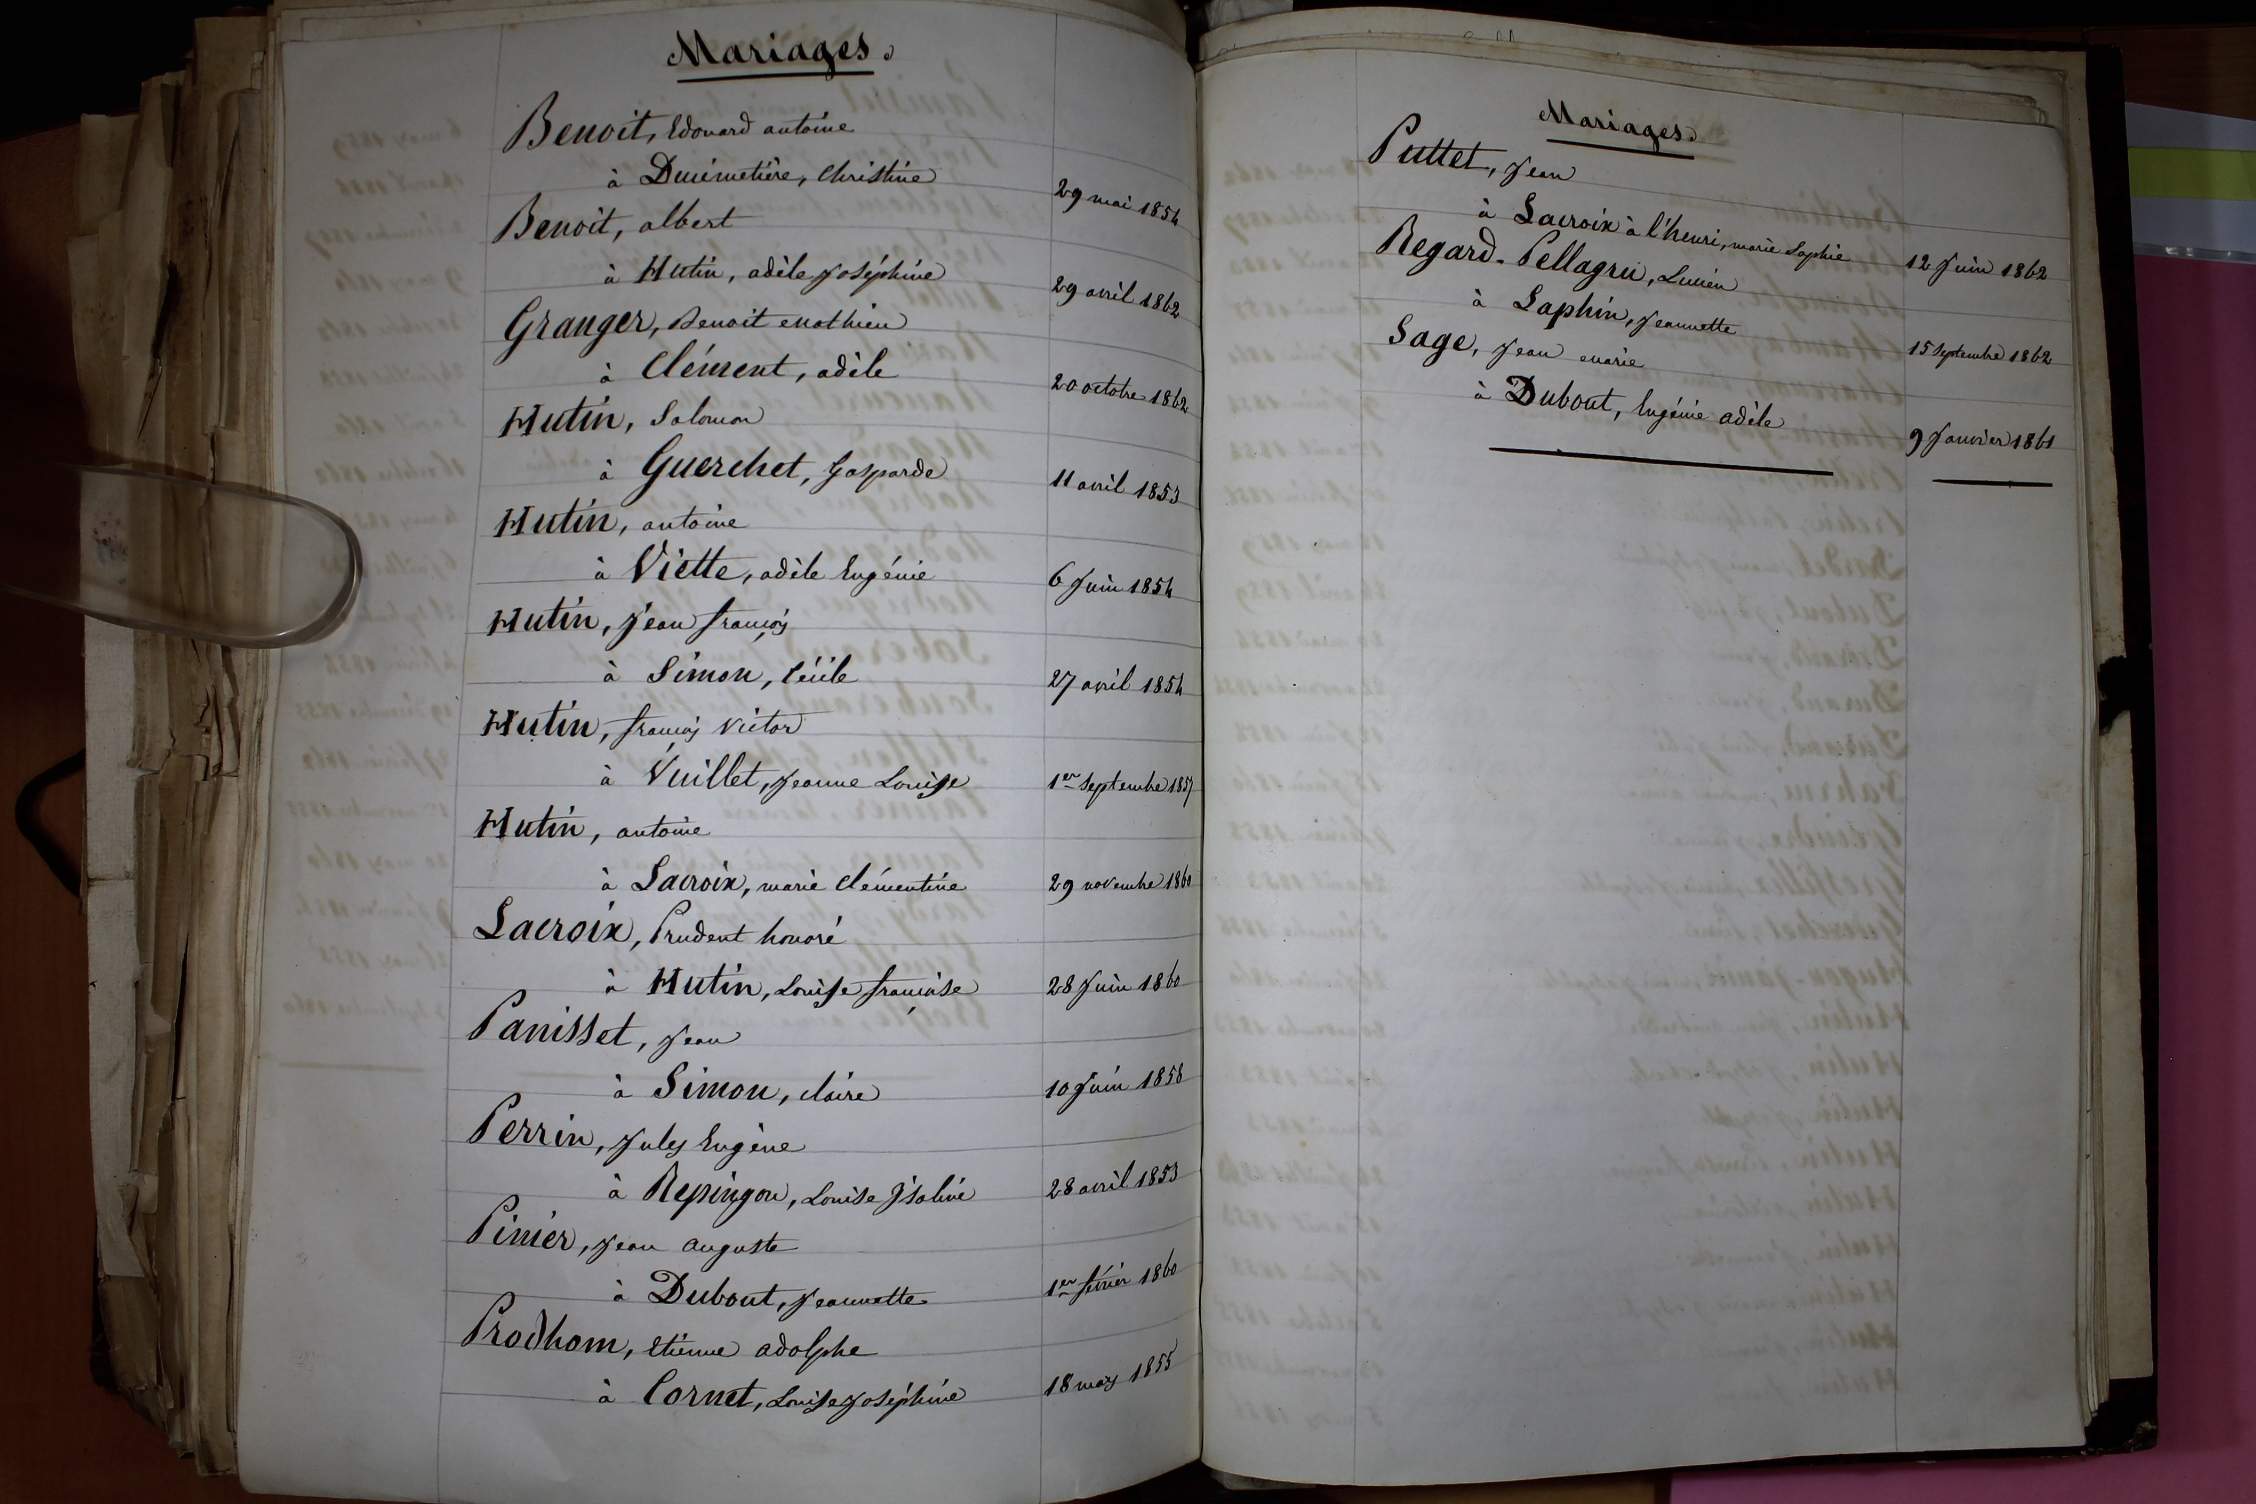 Mariages.
Benoit, Edouard antoine
à Dumimetière, Christine 29 mai 1854
Benoit, albert
à Hutin, adèle Joséphine 29 avril 1862
Granger, Benoit mathieu
à Clément, adèle 20 octobre 1862
Hutin, Salomon
à Guerchet, Gasparde 11 avril 1853
Hutin, antoine
à Viette, adèle Eugénie 6 Juin 1854
Hutin, Jean françois
à Simon, Cécile 27 avril 1854
Hutin, françois victor
à Vuillet, Jeanne Louise 1er septembre 1857
Hutin, antoine
à Lacroix, marie clémentine 29 novembre 1860
Lacroix, Prudent honoré
à Hutin, Louise françoise 28 Juin 1860
Panisset, Jean
à Simon, claire 10 Juin 1858
Perrin, Jules Eugène
à Repingon, Louise Isaline 28 avril 1853
Pinier, Jean auguste
à Dubout, Jeannette 1er février 1860
Prodhom, étienne adolphe
à Cornet, Louise Joséphine 18 mars 1855
Mariages.
Puttet, Jean
à Lacroix à l'henri, marie Sophie 12 Juin 1862
Regard-Pellagru, Lucien
à Laphin, Jeannette 15 septembre 1862
Sage, Jean marie
à Dubout, Eugénie adèle 9 Janvier 1861